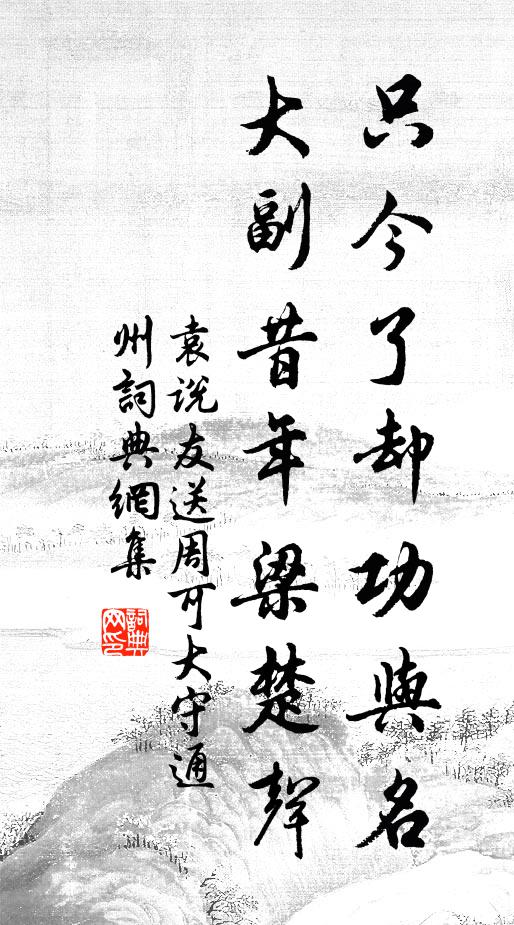 只今了却功與名
大副昔年梁楚聲
袁说友送周可大守通
州詞典網集
詞典網印